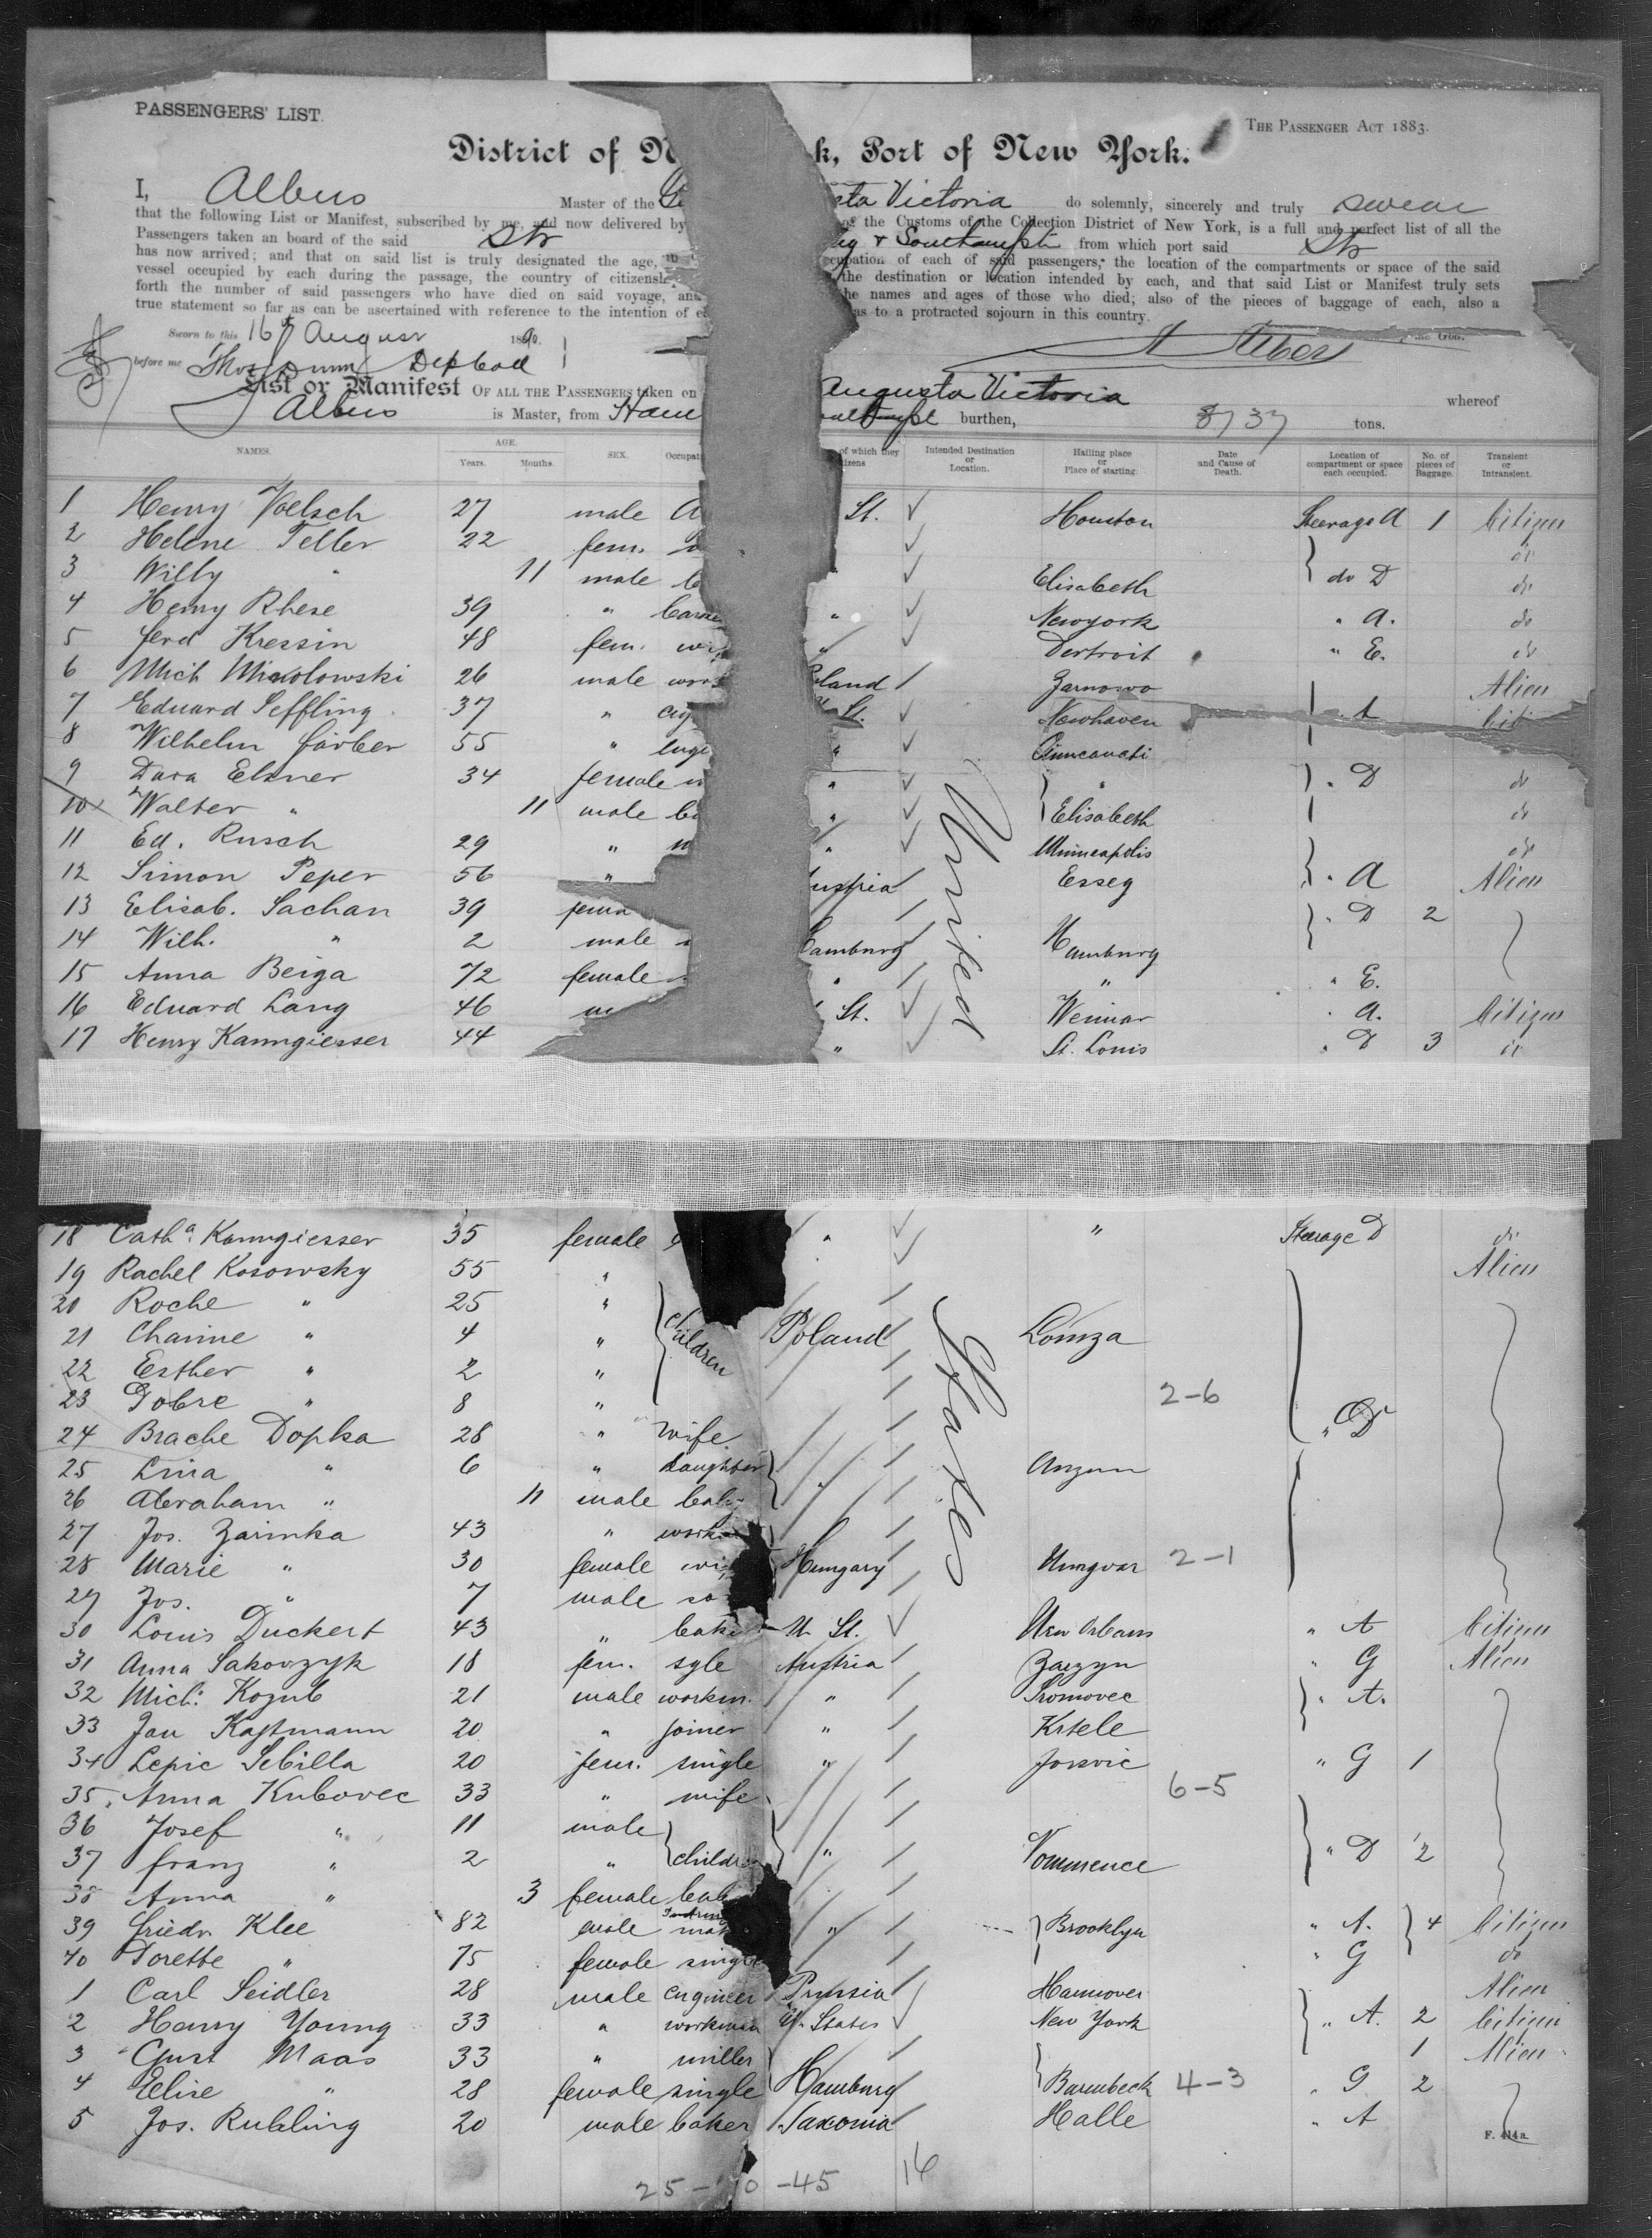 PASSENGERS' LIST.
THE PASSENGER ACT 1883.
District of N k, Port of New York.
I, Albers Master of the sta Victoria do solemnly, sincerely and truly swear
that the following List or Manifest, subscribed by me, and now delivered by of the Customs of the Collection District of New York, is a full and perfect list of all the
Passengers taken an board of the said Str rg & Southampt from which port said Str
has now arrived; and that on said list is truly designated the age, cupation of each of said passengers, the location of the compartments or space of the said
vessel occupied by each during the passage, the country of citizensh the destination or location intended by each, and that said List or Manifest truly sets
forth the number of said passengers who have died on said voyage, an he names and ages of those who died; also of the pieces of baggage of each, also a
true statement so far as can be ascertained with reference to the intention of e as to a protracted sojourn in this country.
Sworn to this 16 August 1890.
before me Thos Dunn Dep Coll
A Albers
List or Manifest OF ALL THE PASSENGERS taken on Augusta Victoria whereof
Albers is Master, from Ham burthen, 8737 tons.
NAMES. AGE. Years. Months. SEX. Occupat of which they itizens Intended Destination or Location. Hailing place or Place of starting. Date and Cause of Death. Location of compartment or space each occupied. No. of pieces of Baggage. Transient or Intransient.
1 Henry Voelsch 27 male St. ✓ Houston Steerage A 1 Citizen
2 Helene Teller 22 fem. ✓ do
3 Willy " 11 male " ✓ Elisabeth do D do
4 Henry Rhese 39 " " ✓ Newyork " A. do
5 Ferd Kressin 48 fem. wi " ✓ Dertroit " E. do
6 Mich 26 male work land / Zarnowo Alien
7 Eduard Seffling 37 " cig St. ✓ Newhaven A Citi
8 Wilhelm Färber 55 " " ✓
9 Dora Elsner 34 female " ✓ " " D do
10 Walter " 11 male " ✓ Elisabeth do
11 Ed. Rusch 29 " " ✓ Minneapolis do
12 Simon Peper 56 " ustria / Esseg " A Alien
13 Elisab. Sachan 39 fema / " D 2
14 Wilh. " 2 male Hamburg / Hamburg
15 Anna Beiga 72 female " / " " E.
16 Eduard Lang 46 m St. ✓ Weimar " A. Citizen
17 Henry Kanngiesser 44 " ✓ St. Louis " D 3 do
United
18 Catha. Kanngiesser 35 female " ✓ " Steerage D do
19 Rachel Kosowsky 55 " ✓ Alien
20 Roche " 25 " /
21 Chaine " 4 " children Poland / Lomza
22 Esther " 2 " /
23 Dobre " 8 " / 2-6 " D
24 Brache Dopka 28 " wife /
25 Lina " 6 " daughter " /
26 Abraham " 11 male baby /
27 Jos. Zarinka 43 " work /
28 Marie " 30 female wi Hungary / Ungvar 2-1
29 Jos. " 7 male so /
30 Louis Duckert 43 " bake U. St. ✓ New Orleans " A Citizen
31 Anna Sakovzyk 18 fem. sgle Austria / " G Alien
32 Mich. Kozub 21 male workm. " / Sromovec " A.
33 Jan Kastmann 20 " joiner " / Krtele
34 Lepic Sebilla 20 fem. single " / " G 1
35 Anna Kubovec 33 " wife / 6-5
36 Josef " 11 male /
37 Franz " 2 " children " / " D 2
38 Anna " 3 female bab /
39 Friedr. Klee 82 male " / Brooklyn " A. 4 Citizen
40 Dorette " 75 female single / " G do
1 Carl Seidler 28 male engineer Prussia / Hannover Alien
2 Henry Young 33 " workman U. States ✓ New York " A. 2 Citizen
3 Gust Maas 33 " miller / 1 Alien
4 Elise " 28 female single Hamburg / Barmbeck 4-3 " G 2
5 Jos. Rubling 20 male baker Saxonia / Halle " A
States
F. 414a.
25 - 0 - 45 16